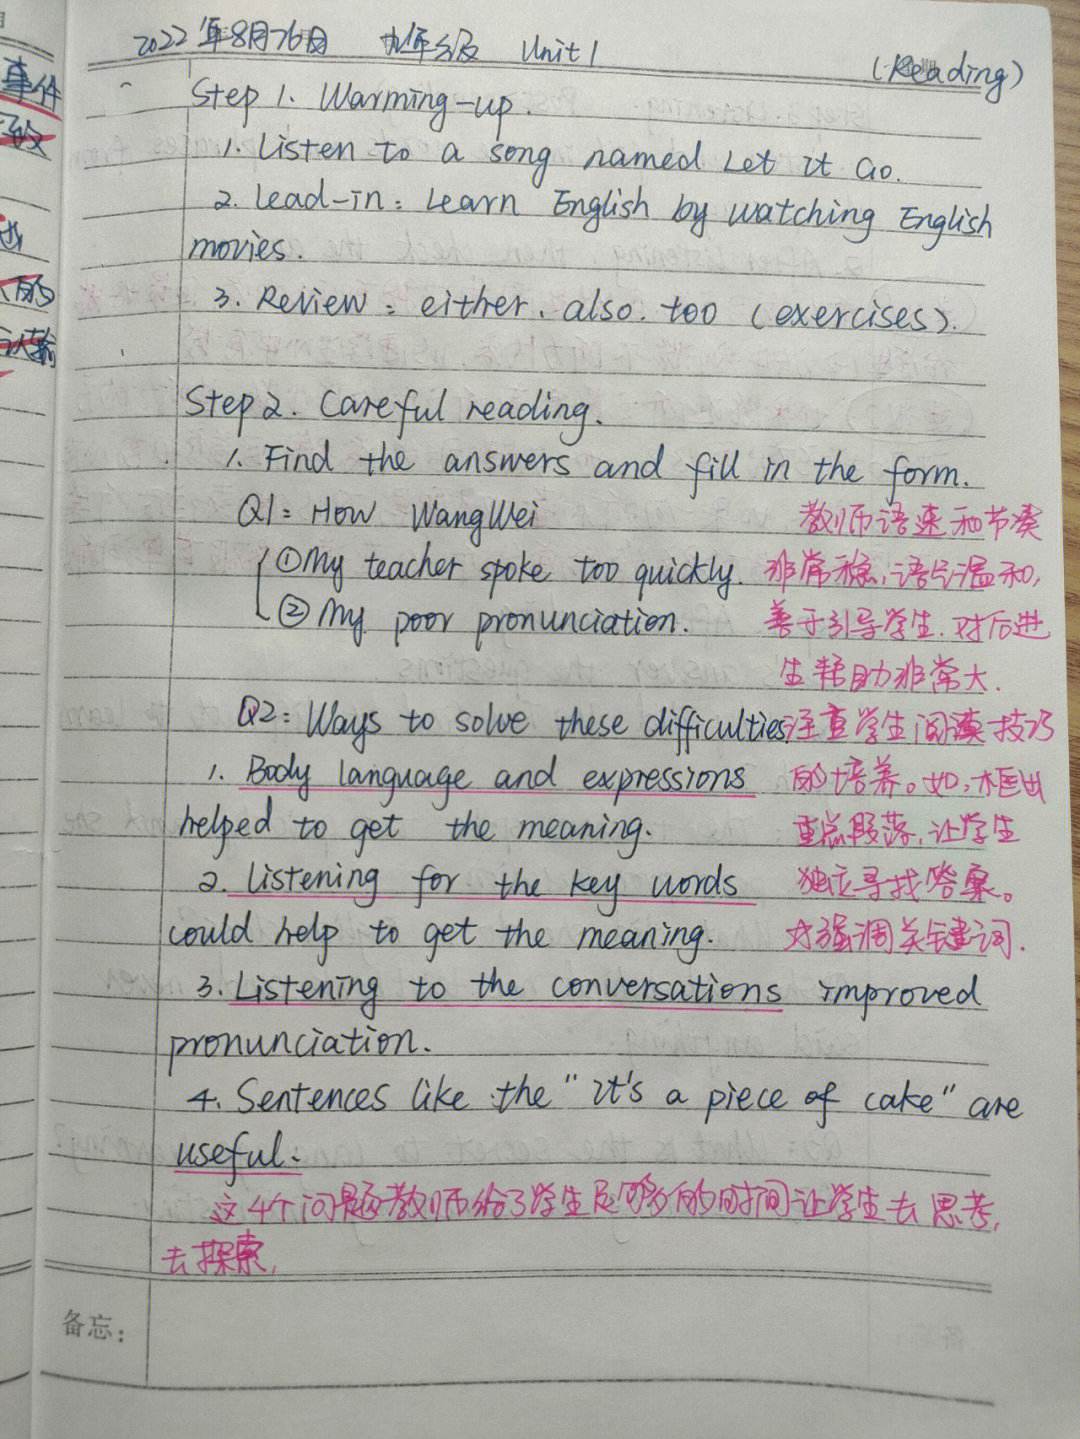 2022年8月26日 九年级 Unit 1 (Reading)
Step 1. Warming-up.
1. Listen to a song named Let it Go.
2. Lead-in: Learn English by watching English
movies.
3. Review: either, also. too (exercises).
Step 2. Careful reading.
1. Find the answers and fill in the form.
Q1: How WangWei
①My teacher spoke too quickly.
②My poor pronunciation.
Q2: Ways to solve these difficulties
1. Body language and expressions
helped to get the meaning.
2. Listening for the key words
could help to get the meaning.
3. Listening to the conversations improved
pronunciation.
4. Sentences like the "It's a piece of cake" are
useful.
教师语速和节奏
非常稳,语气温和,
善于引导学生.对后进
生帮助非常大.
注重学生阅读技巧
的培养。如,框出
重点段落,让学生
独立寻找答案。
强调关键词.
这4个问题教师给了学生足够的时间让学生去思考,
去探索,
备忘:
事件
的